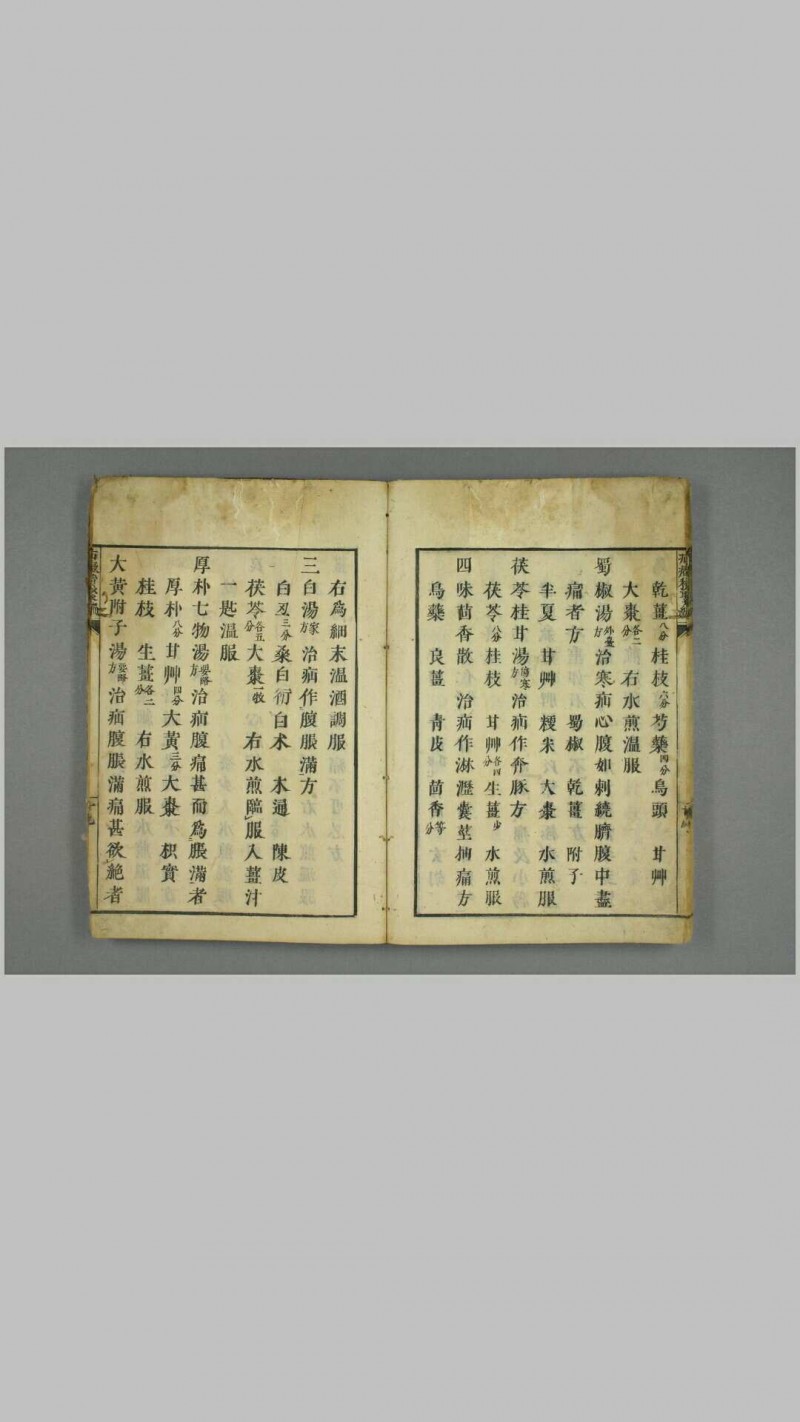 乾薑八分桂枝六分芍藥四分烏頭 甘艸
大棗各二分 右水煎温服
蜀椒湯外臺方治寒疝心腹如刺繞臍腹中盡
痛者方 蜀椒 乾薑 附子
半夏 甘艸 粳米 大棗 水煎服
茯苓桂甘湯傷寒方治疝作奔豚方
茯苓八分桂枝 甘艸各四分生薑少 水煎服
四味茴香散 治疝作淋瀝囊莖抽痛方
烏藥 良薑 青皮 茴香等分
右為細末温酒調服
三白湯家方治疝作腹脹滿方
白丑三分桑白 白术 木通 陳皮
茯苓各五分大棗一枚 右水煎臨服入薑汁
一匙温服
厚朴七物湯要略方治疝腹痛甚而為脹滿者
厚朴八分甘艸四分大黃三分大棗 枳實
桂枝 生薑各二分 右水煎服
大黃附子湯要略方治疝腹脹滿痛甚欲絕者